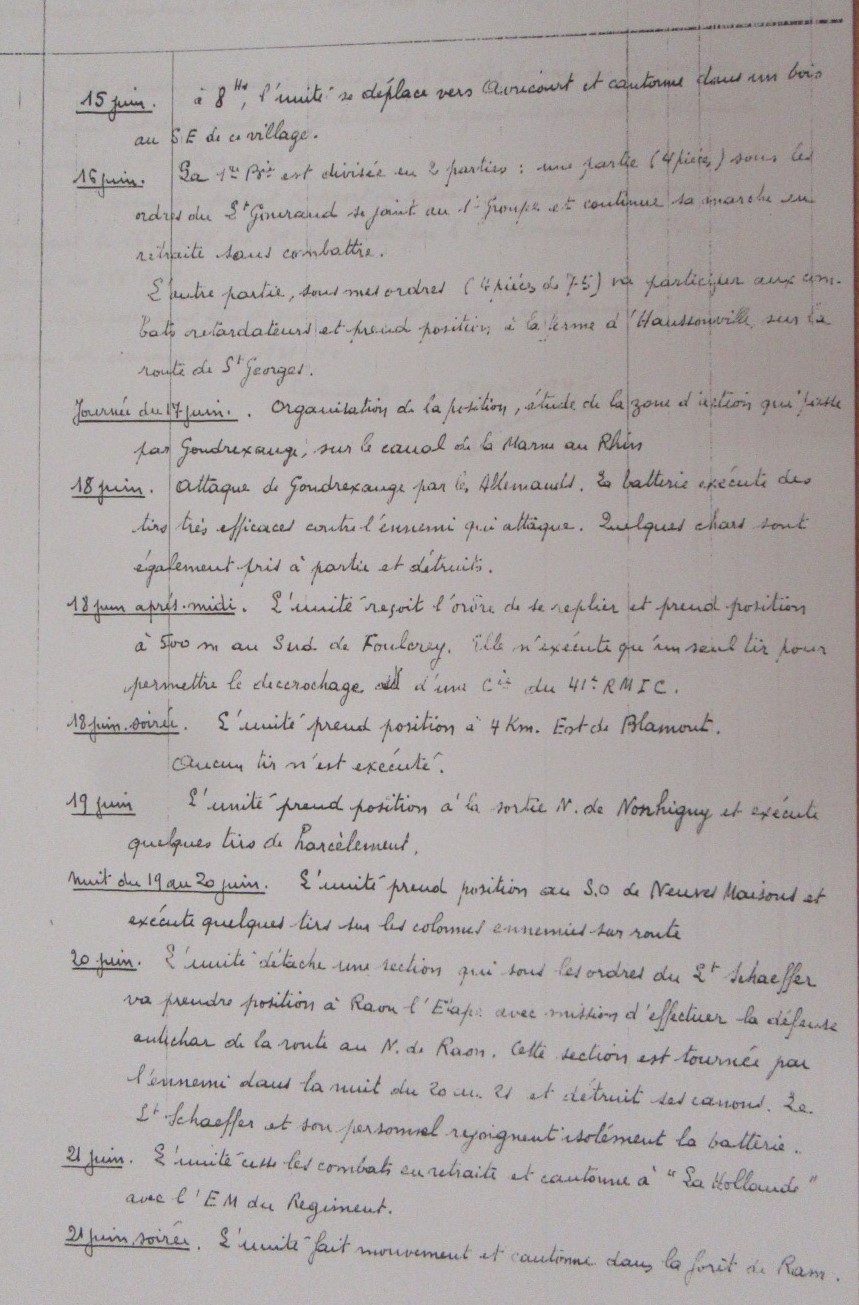 15 juin. à 8 Hs, l'unité se déplace vers Avricourt et cantonne dans un bois
au S.E de ce village.
16 juin. La 1re Bie est divisée en 2 parties : une partie (4 pièces) sous les
ordres du Lt Gouraud se joint au 1er Groupe et continue sa marche en
retraite sans combattre.
L'autre partie, sous mes ordres (4 pièces de 75) va participer aux com-
bats retardateurs et prend position à la ferme d'Haussonville, sur la
route de St Georges.
Journée du 17 juin. . Organisation de la position, étude de la zone d'action qui passe
par Gondrexange, sur le canal de la Marne au Rhin
18 juin. Attaque de Gondrexange par les Allemands. La batterie exécute des
tirs très efficaces contre l'ennemi qui attaque. Quelques chars sont
également pris à partie et détruits.
18 juin après-midi. L'unité reçoit l'ordre de se replier et prend position
à 500 m au Sud de Foulcrey. Elle n'exécute qu'un seul tir pour
permettre le decrochage d'une Cie du 41e RMIC.
18 juin. soirée. L'unité prend position à 4 Km. Est de Blamont.
Aucun tir n'est exécuté.
19 juin L'unité prend position à la sortie N. de Nonhigny et exécute
quelques tirs de harcèlement.
Nuit du 19 au 20 juin. L'unité prend position au S.O de Neuves Maisons et
exécute quelques tirs sur les colonnes ennemies sur route
20 juin. L'unité détache une section qui sous les ordres du Lt Schaeffer
va prendre position à Raon l'Etape avec mission d'effectuer la défense
antichar de la route au N. de Raon. Cette section est tournée par
l'ennemi dans la nuit du 20 au 21 et détruit ses canons. Le
Lt Schaeffer et son personnel rejoignent isolément la batterie.
21 juin. L'unité cesse les combats en retraite et cantonne à "La Hollande"
avec l'EM du Regiment.
21 juin, soirée. L'unité fait mouvement et cantonne dans la forêt de Ram.